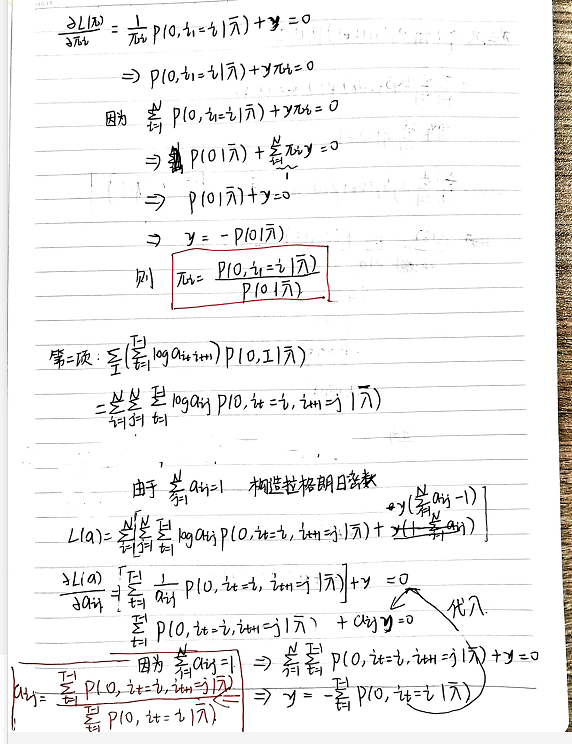 ∂L(π)/∂πi = 1/πi P(O, i1=i|λ̄) + γ = 0
⇒ P(O, i1=i|λ̄) + γπi = 0
因为 ∑_{i=1}^{N} P(O, i1=i|λ̄) + γπi = 0
⇒ P(O|λ̄) + ∑_{i=1}^{N} πiγ = 0
1
⇒ P(O|λ̄) + γ = 0
⇒ γ = -P(O|λ̄)
则 πi = P(O, i1=i|λ̄) / P(O|λ̄)
第二项: ∑_I (∑_{t=1}^{T-1} log a_{it it+1}) P(O, I|λ̄)
= ∑_{i=1}^{N} ∑_{j=1}^{N} ∑_{t=1}^{T-1} log aij P(O, it=i, it+1=j|λ̄)
由于 ∑_{j=1}^{N} aij = 1 构造拉格朗日函数
L(a) = ∑_{i=1}^{N} [∑_{j=1}^{N} ∑_{t=1}^{T-1} log aij P(O, it=i, it+1=j|λ̄) + γ(∑_{j=1}^{N} aij - 1)]
∂L(a)/∂aij = [∑_{t=1}^{T-1} 1/aij P(O, it=i, it+1=j|λ̄)] + γ = 0
∑_{t=1}^{T-1} P(O, it=i, it+1=j|λ̄) + aijγ = 0 代入
因为 ∑_{j=1}^{N} aij = 1 ⇒ ∑_{j=1}^{N} ∑_{t=1}^{T-1} P(O, it=i, it+1=j|λ̄) + γ = 0
⇒ γ = -∑_{t=1}^{T-1} P(O, it=i|λ̄)
aij = ∑_{t=1}^{T-1} P(O, it=i, it+1=j|λ̄) / ∑_{t=1}^{T-1} P(O, it=i|λ̄) ⇐